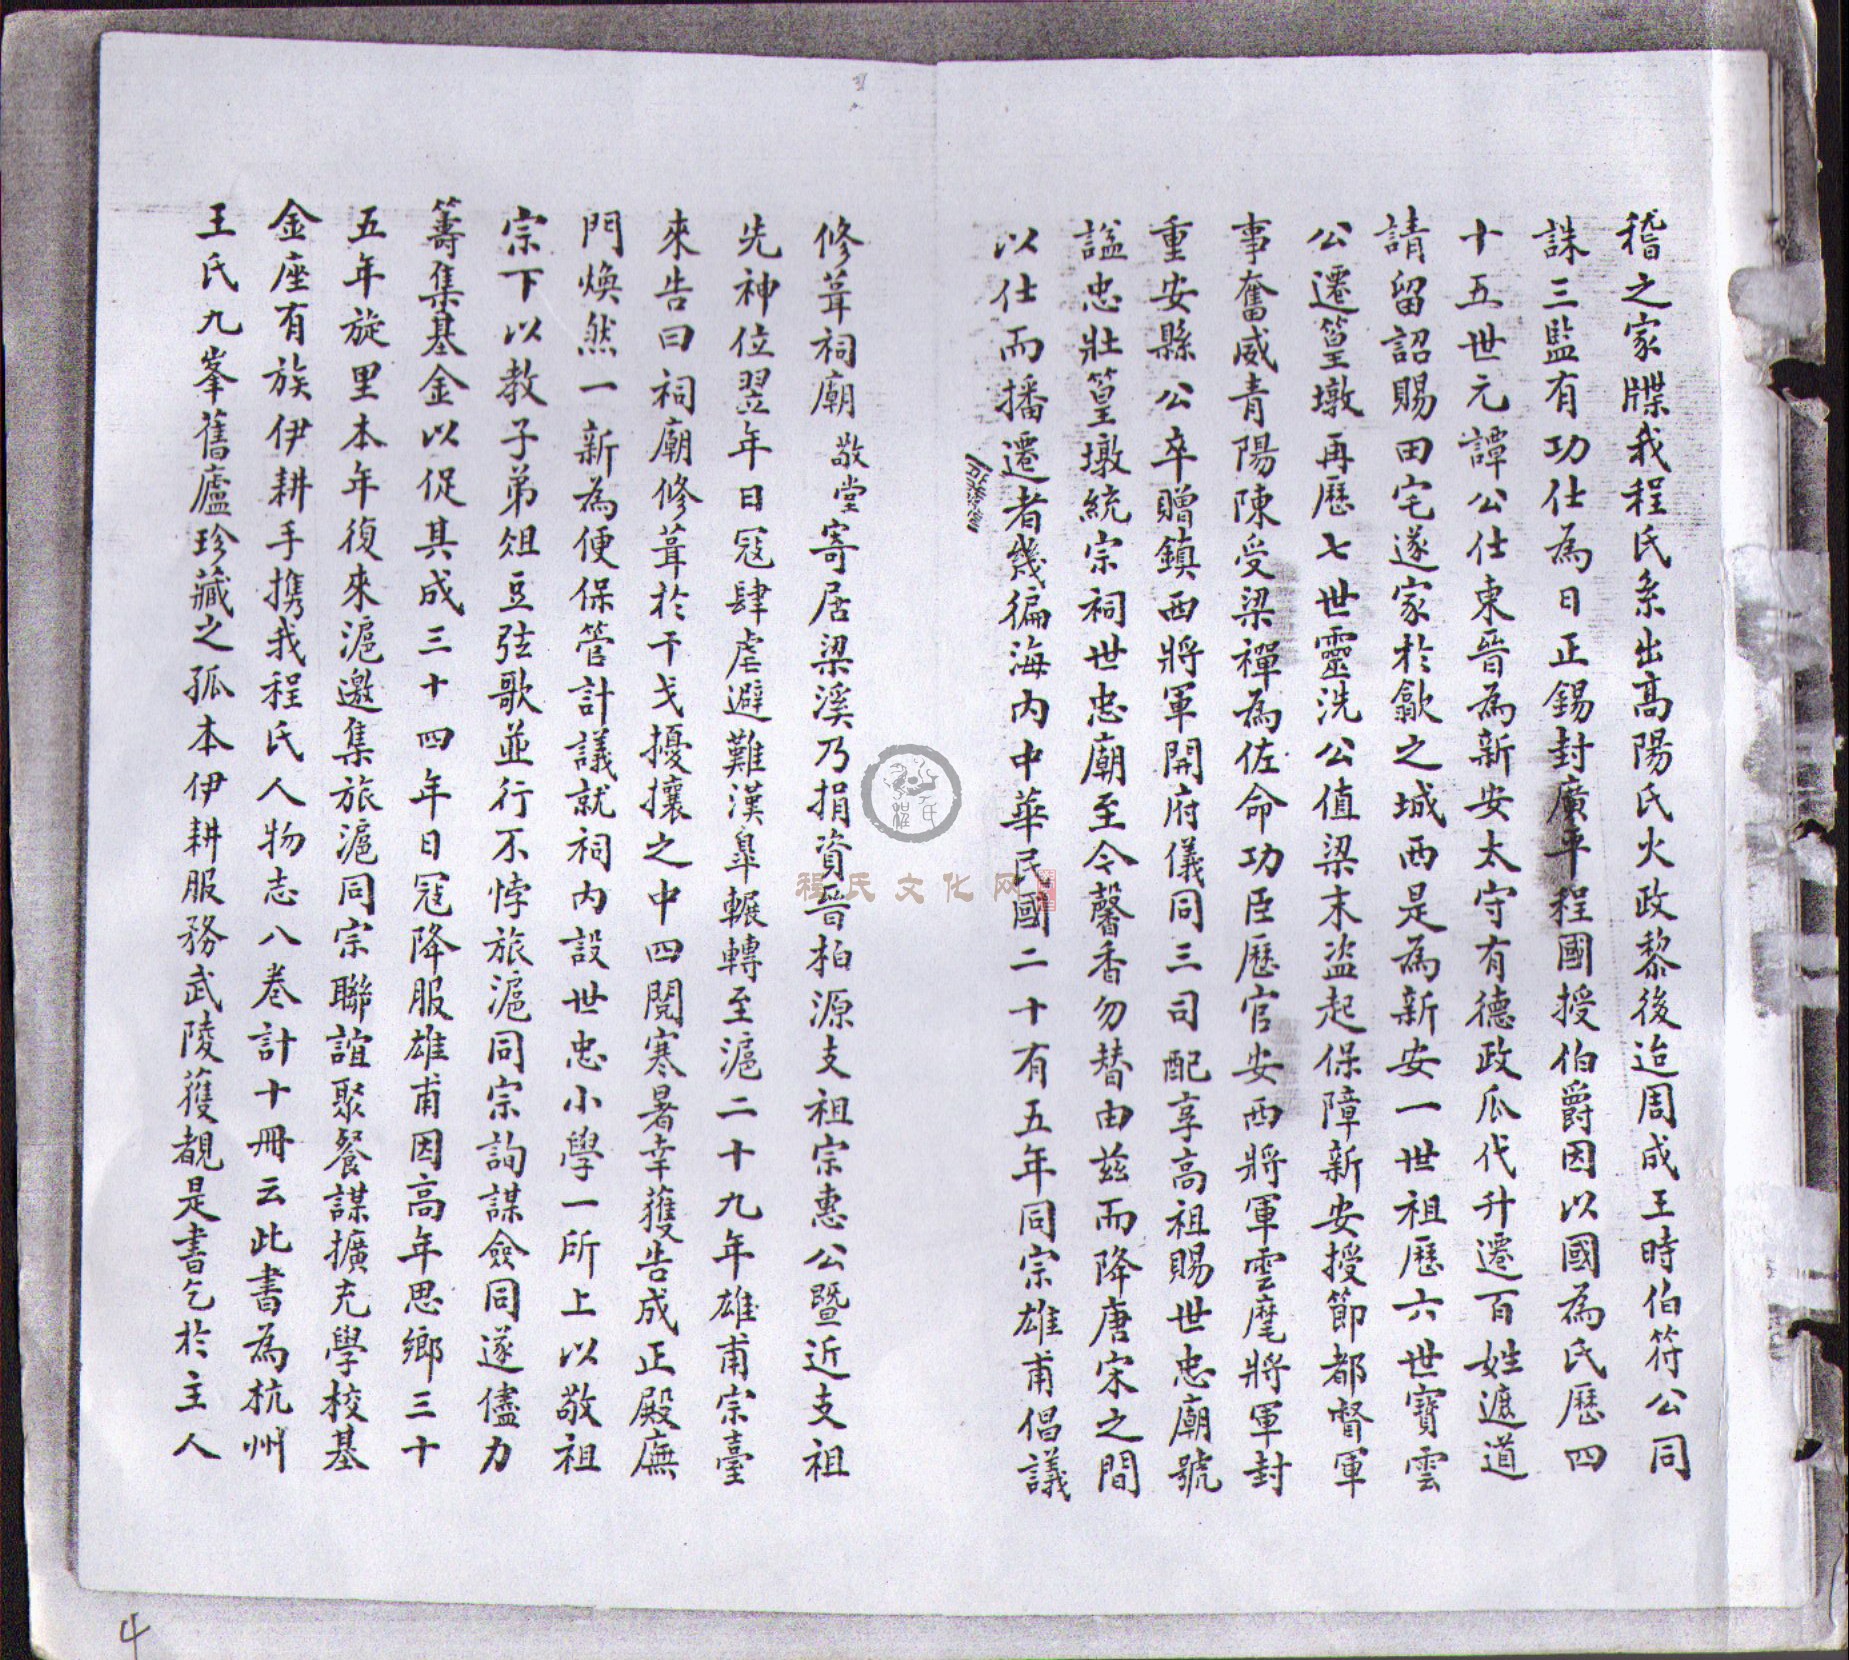 稽之家牒我程氏系出高陽氏火政黎後迨周成王時伯符公同
誅三監有功仕為日正錫封廣平程國授伯爵因以國為氏歷四
十五世元譚公仕東晉為新安太守有德政瓜代升遷百姓遮道
請留詔賜田宅遂家於歙之城西是為新安一世祖歷六世寶雲
公遷篁墩再歷七世靈洗公值梁末盜起保障新安授節都督軍
事奮威青陽陳受梁禪為佐命功臣歷官安西將軍雲麾將軍封
重安縣公卒贈鎮西將軍開府儀同三司配享高祖賜世忠廟號
謚忠壯篁墩統宗祠世忠廟至今馨香勿替由茲而降唐宋之間
以仕而播遷者幾徧海內中華民國二十有五年同宗雄甫倡議
修葺祠廟敬堂寄居梁溪乃捐資晉柏源支祖宗惠公暨近支祖
先神位翌年日寇肆虐避難漢臯輾轉至滬二十九年雄甫宗臺
來告曰祠廟修葺於干戈擾攘之中四閱寒暑幸獲告成正殿廡
門煥然一新為便保管計議就祠內設世忠小學一所上以敬祖
宗下以教子弟俎豆弦歌並行不悖旅滬同宗詢謀僉同遂儘力
籌集基金以促其成三十四年日寇降服雄甫因高年思鄉三十
五年旋里本年復來滬邀集旅滬同宗聯誼聚餐謀擴充學校基
金座有族伊耕手攜我程氏人物志八卷計十冊云此書為杭州
王氏九峯舊廬珍藏之孤本伊耕服務武陵獲覩是書乞於主人
程氏文化网
4